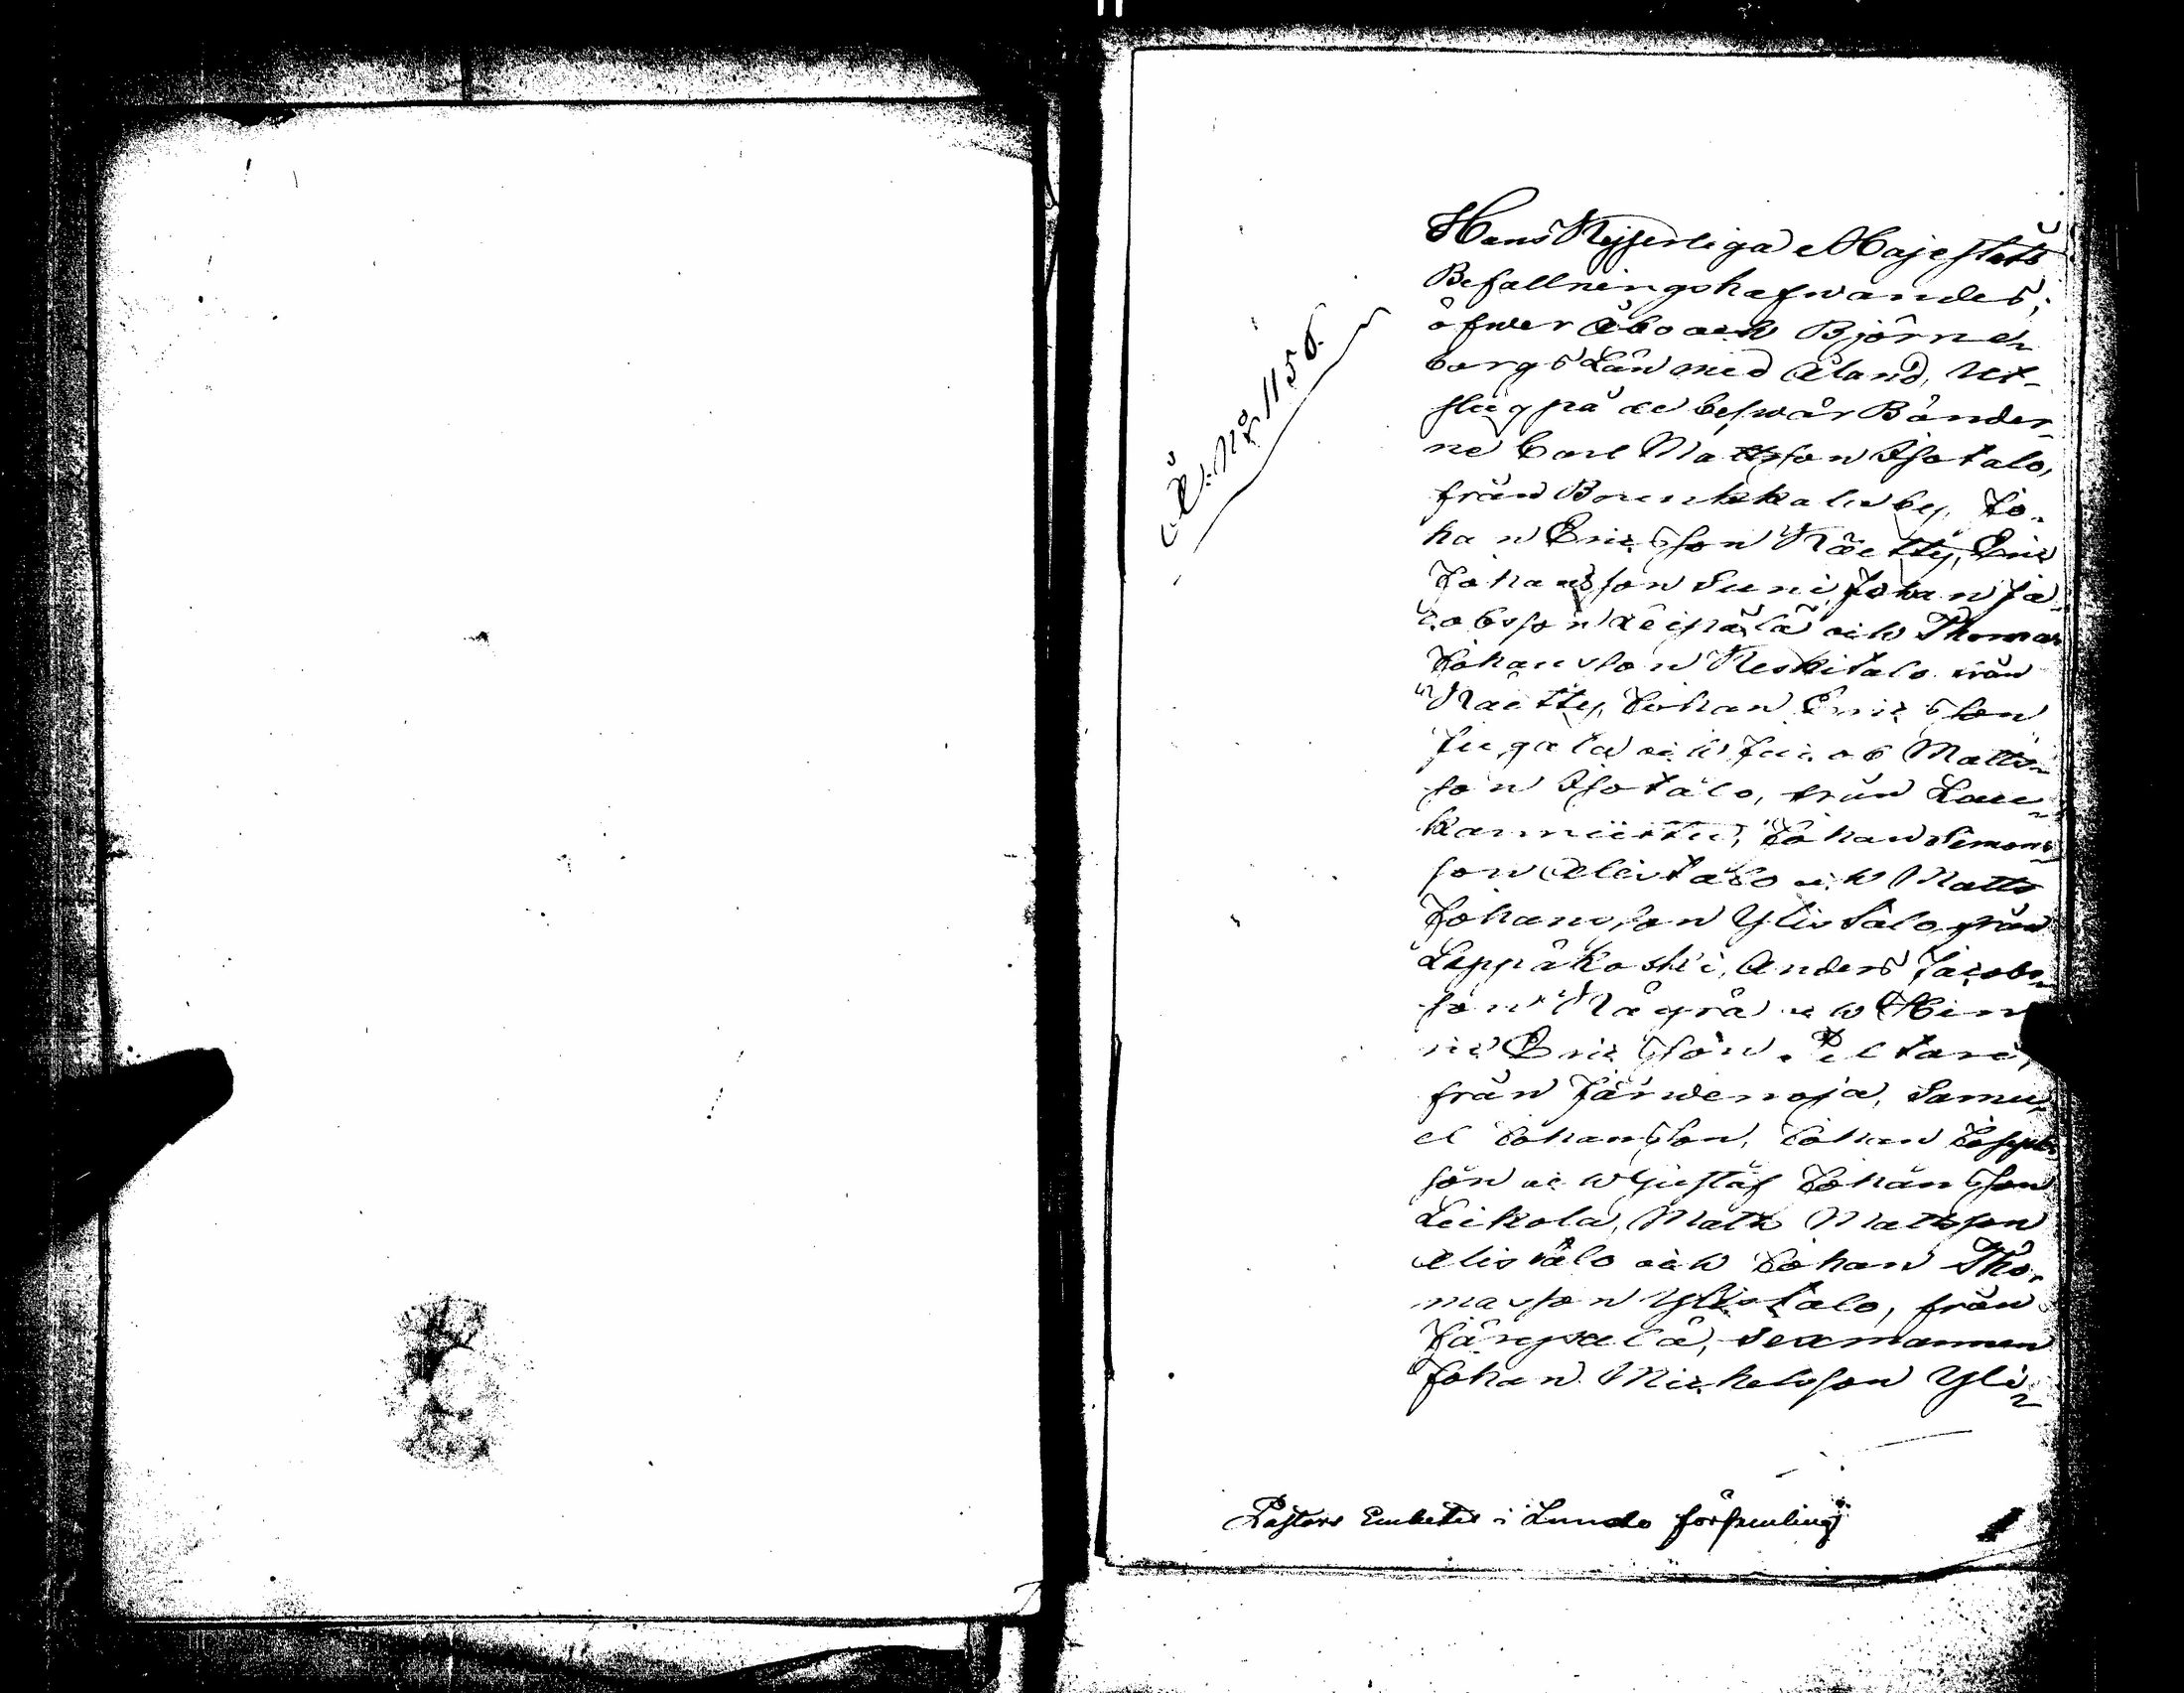 Hans Kejserliga Majestäts
Befallningshafwandes,
öfwer Åbo och Björne-
borgs Län med Åland, Ut-
slag på de beswär Bönder-
ne Carl Mattsson Isotalo,
från Brunkkala by, Jo-
han Ericsson Käetty, Eric
Johansson Suni Johan Ja-
cobsson Leipälä och Thomas
Johansson Keskitalo från
Käetty, Johan Ericsson
Jugala och Jacob Matts-
son Isotalo, från Lau-
kanniittu, Johan Simons-
son Alistalo och Matts
Johansson Ylistalo från
Leppäkoski, Anders Jacobs-
son Någrå och Hin-
ric Ericsson Peltari,
från Järwenoja, Samu-
el Johansson, Johan Josephs-
son och Gustaf Johansson
Leikola, Matts Mattsson
Alistalo och Johan Tho-
masson Ylistalo, från
Järypälä, Sexmannen
Johan Michelsson Yli-
Å. Nr 1156.
Pastors Embetet i Lundo församling